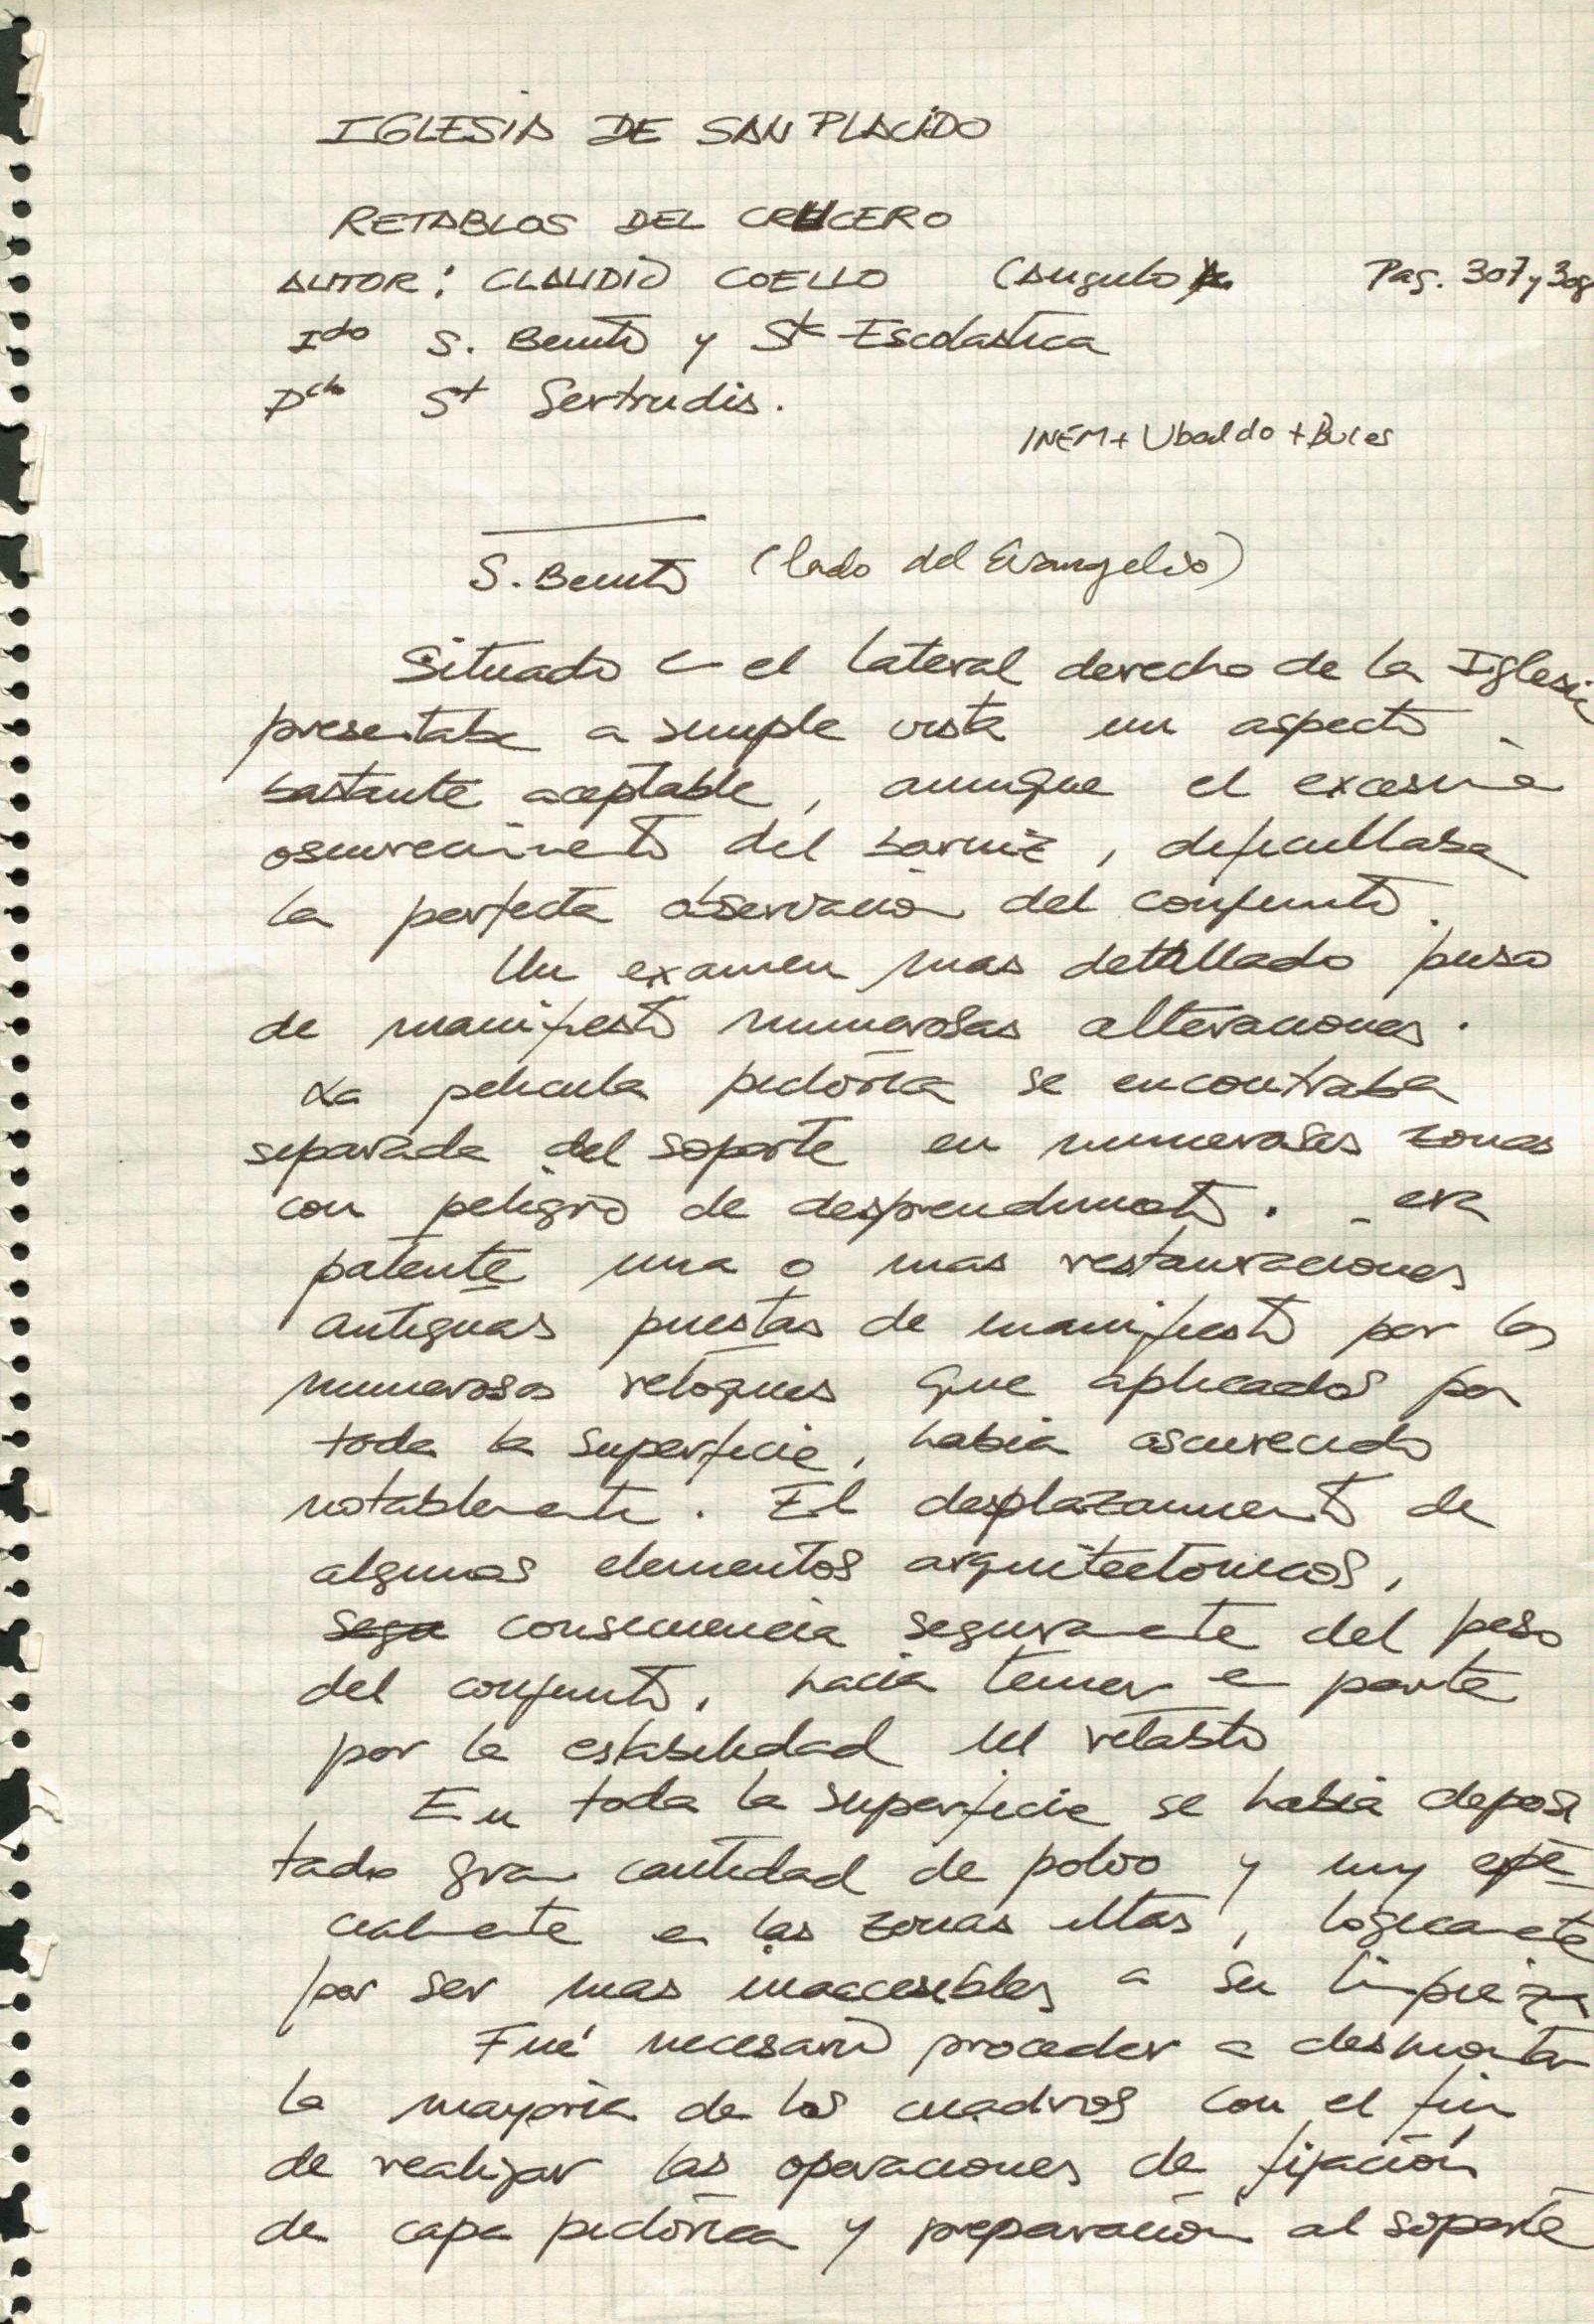 IGLESIA DE SAN PLACIDO
RETABLOS DEL CRUCERO
AUTOR: CLAUDIO COELLO (Angulo Pag. 307 y 308
Ido S. Benito y Sta Escolastica
Dcho St Gertrudis.
INEM + Ubaldo +
S. Benito (lado del Evangelio)
Situado en el lateral derecho de la Iglesia
presentaba a simple vista un aspecto
bastante aceptable, aunque el excesivo
oscurecimiento del barniz, dificultaba
la perfecta observación del conjunto.
Un examen mas detallado puso
de manifiesto numerosas alteraciones.
La pelicula pictórica se encontraba
separada del soporte en numerosas zonas
con peligro de desprendimiento. era
patente una o mas restauraciones
antiguas puestas de manifiesto por los
numerosos retoques que aplicados por
toda la superficie, habia oscurecido
notablemente. El desplazamiento de
algunos elementos arquitectonicos,
consecuencia seguramente del peso
del conjunto, hacia temer en parte
por la estabilidad del retablo
En toda la superficie se habia deposi
tado gran cantidad de polvo y muy espe-
cialmente en las zonas altas, logicamente
por ser mas inaccesibles a su limpieza
Fué necesario proceder a desmontar
la mayoria de los cuadros con el fin
de realizar las operaciones de fijación
de capa pictórica y preparación al soporte